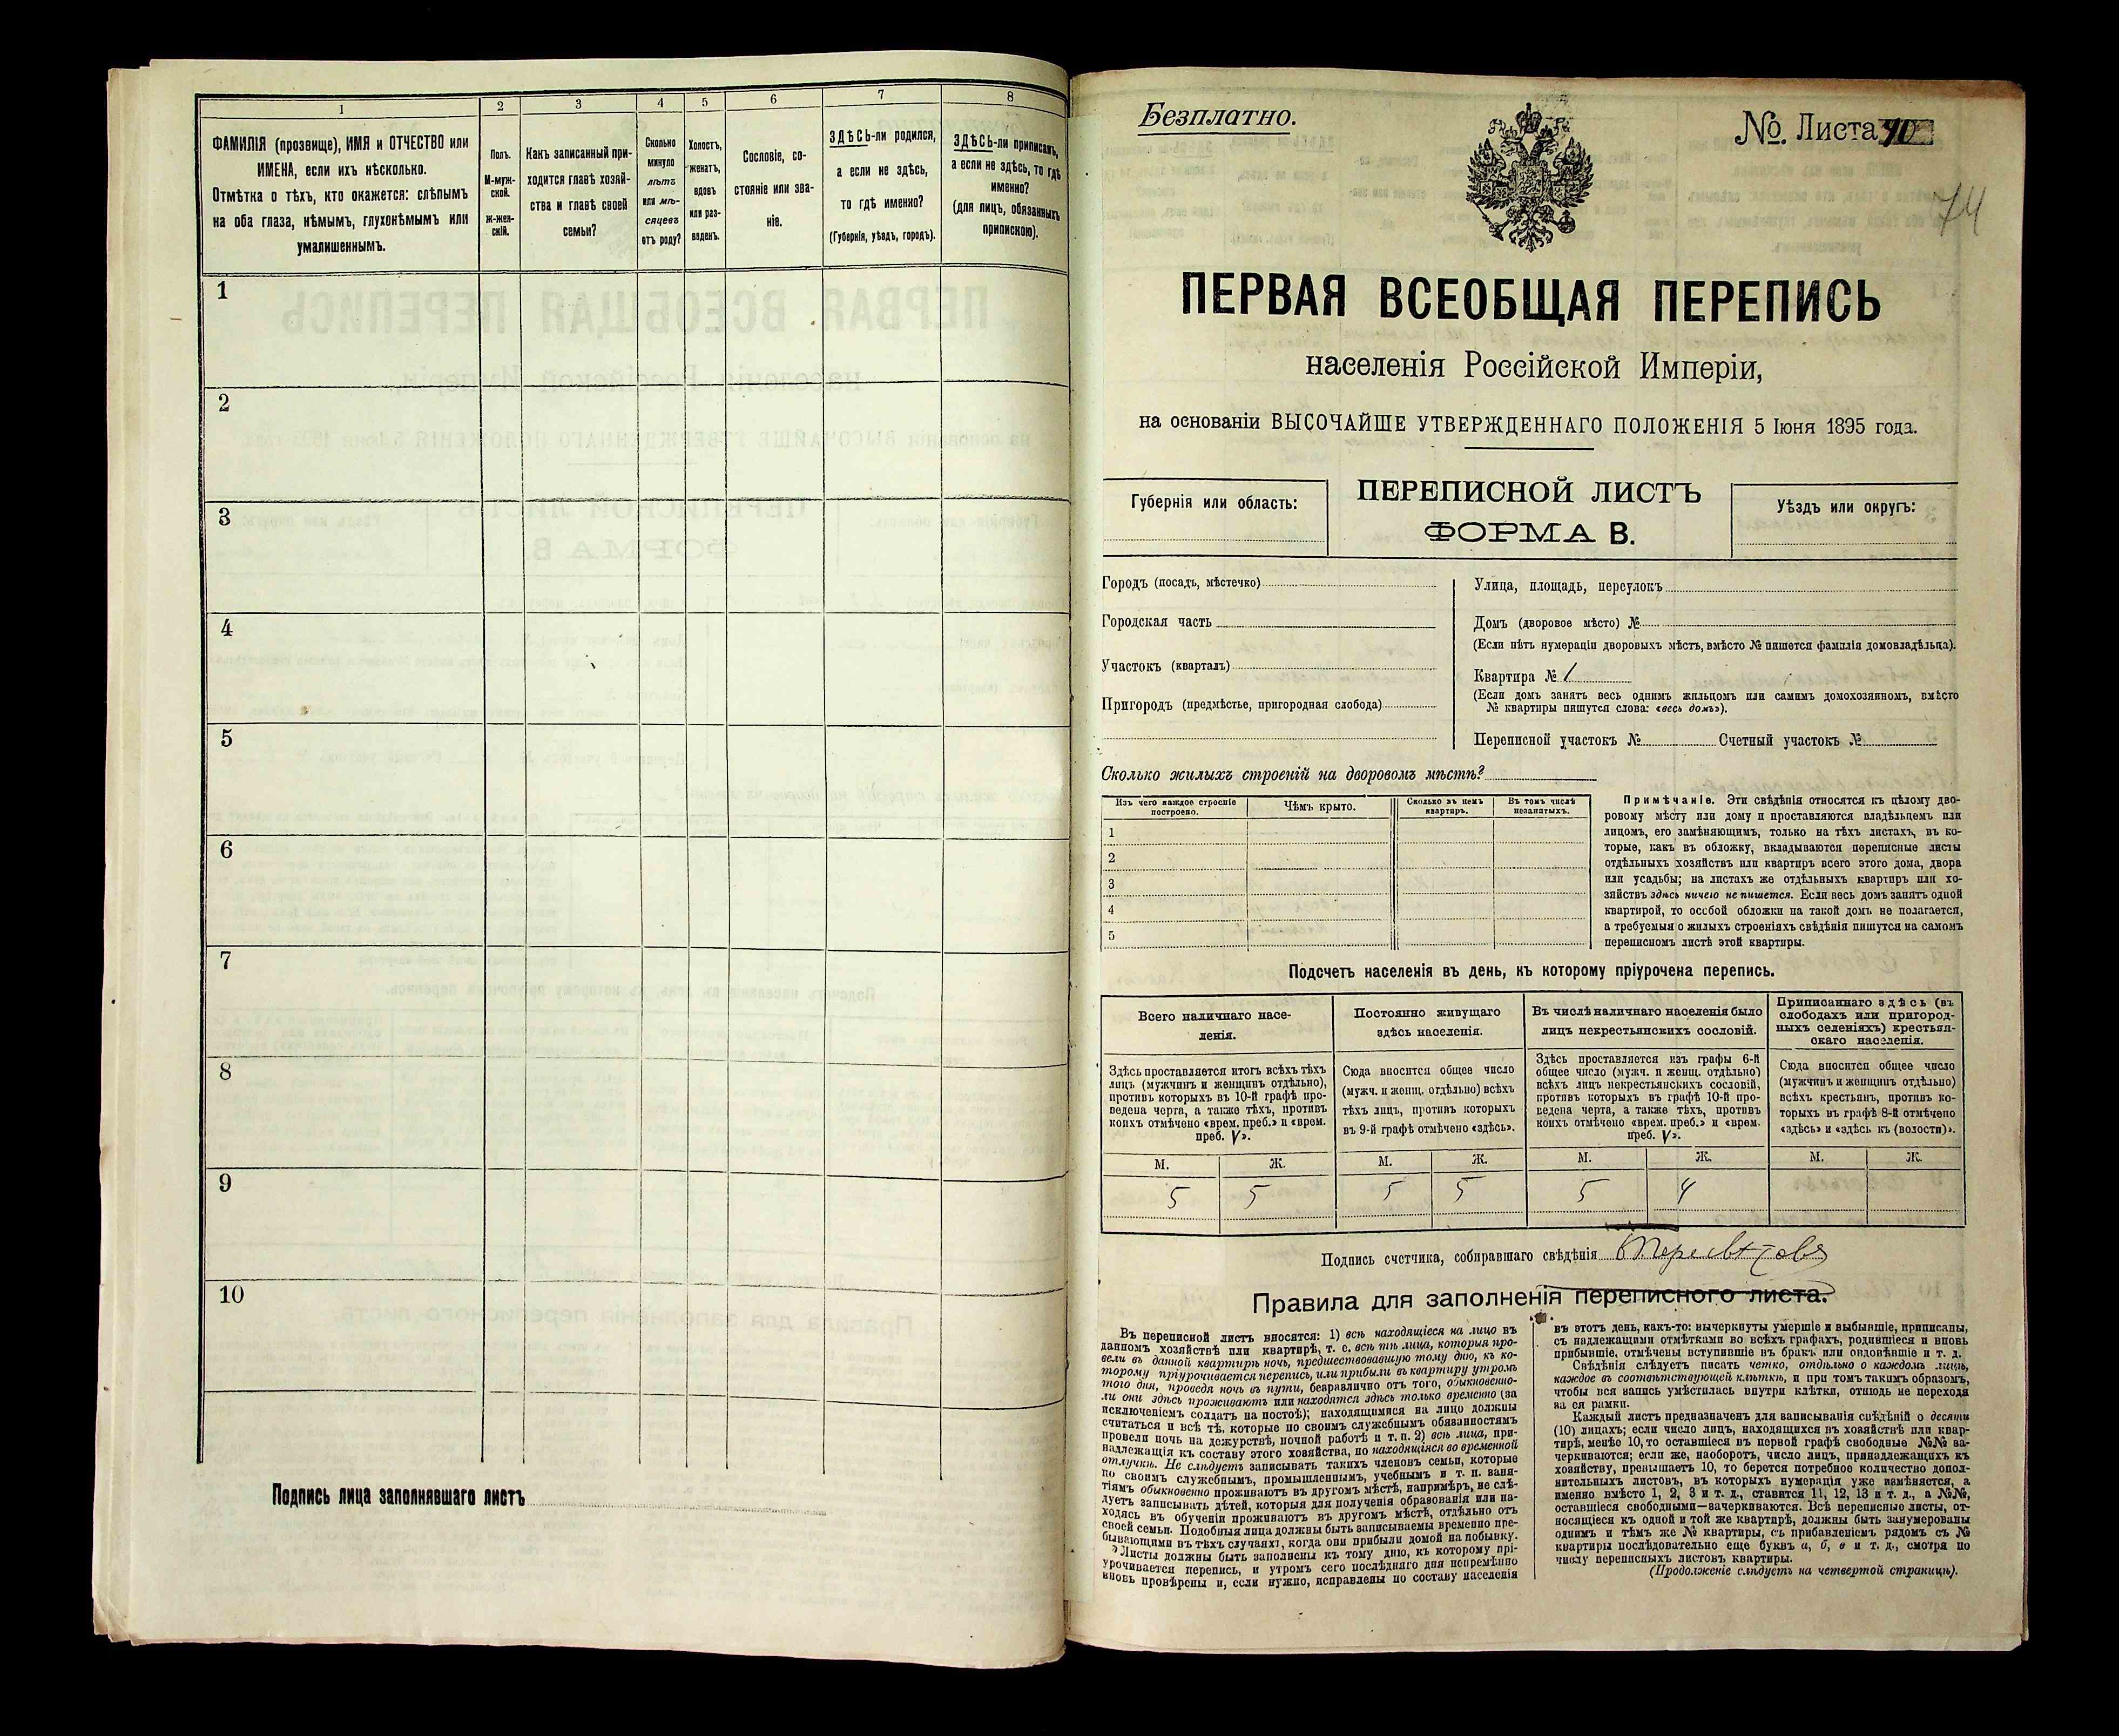 1
2
3
4
5
6
7
8
ФАМИЛІЯ (прозвище), ИМЯ и ОТЧЕСТВО или
ИМЕНА, если ихъ нѣсколько.
Отмѣтка о тѣхъ, кто окажется: слѣпымъ
на оба глаза, нѣмымъ, глухонѣмымъ или
умалишеннымъ.
Полъ.
М-муж-
ской.
ж-жен-
скій.
Какъ записанный при-
ходится главѣ хозяй-
ства и главѣ своей
семьи?
Сколько
минуло
лѣтъ
или мѣ-
сяцевъ
отъ роду?
Холостъ,
женатъ,
вдовъ
или раз-
веденъ.
Сословіе, со-
стояніе или зва-
ніе.
ЗДѢСЬ-ли родился,
а если не здѣсь,
то гдѣ именно?
(Губернія, уѣздъ, городъ).
ЗДѢСЬ-ли приписанъ,
а если не здѣсь, то гдѣ
именно?
(для лицъ, обязанныхъ
припискою).
1
2
3
4
5
6
7
8
9
10
Подпись лица заполнявшаго листъ
Безплатно.
№ Листа 40
74
ПЕРВАЯ ВСЕОБЩАЯ ПЕРЕПИСЬ
населенія Россійской Имперіи,
на основаніи ВЫСОЧАЙШЕ УТВЕРЖДЕННАГО ПОЛОЖЕНІЯ 5 Іюня 1895 года.
Губернія или область:
ПЕРЕПИСНОЙ ЛИСТЪ
ФОРМА В.
Уѣздъ или округъ:
Городъ (посадъ, мѣстечко)
Городская часть
Участокъ (кварталъ)
Пригородъ (предмѣстье, пригородная слобода)
Улица, площадь, переулокъ
Домъ (дворовое мѣсто) №
(Если нѣтъ нумераціи дворовыхъ мѣстъ, вмѣсто № пишется фамилія домовладѣльца).
Квартира № 1
(Если домъ занятъ весь однимъ жильцомъ или самимъ домохозяиномъ, вмѣсто
№ квартиры пишутся слова: «весь домъ»).
Переписной участокъ № Счетный участокъ №
Сколько жилыхъ строеній на дворовомъ мѣстѣ?
Изъ чего каждое строеніе
построено.
Чѣмъ крыто.
Сколько въ немъ
квартиръ.
Въ томъ числѣ
незанятыхъ.
1
2
3
4
5
Примѣчаніе. Эти свѣдѣнія относятся къ цѣлому дво-
ровому мѣсту или дому и проставляются владѣльцемъ или
лицомъ, его замѣняющимъ, только на тѣхъ листахъ, въ ко-
торые, какъ въ обложку, вкладываются переписные листы
отдѣльныхъ хозяйствъ или квартиръ всего этого дома, двора
или усадьбы; на листахъ же отдѣльныхъ квартиръ или хо-
зяйствъ здѣсь ничего не пишется. Если весь домъ занятъ одной
квартирой, то особой обложки на такой домъ не полагается,
а требуемыя о жилыхъ строеніяхъ свѣдѣнія пишутся на самомъ
переписномъ листѣ этой квартиры.
Подсчетъ населенія въ день, къ которому пріурочена перепись.
Всего наличнаго насе-
ленія.
Здѣсь проставляется итогъ всѣхъ тѣхъ
лицъ (мужчинъ и женщинъ отдѣльно),
противъ которыхъ въ 10-й графѣ про-
ведена черта, а также тѣхъ, противъ
коихъ отмѣчено «врем. преб.» и «врем.
преб. V».
Постоянно живущаго
здѣсь населенія.
Сюда вносится общее число
(мужч. и женщ. отдѣльно) всѣхъ
тѣхъ лицъ, противъ которыхъ
въ 9-й графѣ отмѣчено «здѣсь».
Въ числѣ наличнаго населенія было
лицъ некрестьянскихъ сословій.
Здѣсь проставляется изъ графы 6-й
общее число (мужч. и женщ. отдѣльно)
всѣхъ лицъ некрестьянскихъ сословій,
противъ которыхъ въ графѣ 10-й про-
ведена черта, а также тѣхъ, противъ
коихъ отмѣчено «врем. преб.» и «врем.
преб. V».
Приписаннаго здѣсь (въ
слободахъ или пригород-
ныхъ селеніяхъ) крестьян-
скаго населенія.
Сюда вносится общее число
(мужчинъ и женщинъ отдѣльно)
всѣхъ крестьянъ, противъ ко-
торыхъ въ графѣ 8-й отмѣчено
«здѣсь» и «здѣсь къ (волости)».
М. Ж. М. Ж. М. Ж. М. Ж.
5 5 5 5 5 4
Подпись счетчика, собиравшаго свѣдѣнія
Правила для заполненія переписного листа.
Въ переписной листъ вносятся: 1) всѣ находящіеся на лицо въ
данномъ хозяйствѣ или квартирѣ, т. е. всѣ тѣ лица, которыя про-
вели въ данной квартирѣ ночь, предшествовавшую тому дню, къ ко-
торому пріурочивается перепись, или прибыли въ квартиру утромъ
того дня, проведя ночь въ пути, безразлично отъ того, обыкновенно-
ли они здѣсь проживаютъ или находятся здѣсь только временно (за
исключеніемъ солдатъ на постоѣ); находящимися на лицо должны
считаться и всѣ тѣ, которые по своимъ служебнымъ обязанностямъ
провели ночь на дежурствѣ, ночной работѣ и т. п. 2) всѣ лица, при-
надлежащія къ составу этого хозяйства, но находящіяся во временной
отлучкѣ. Не слѣдуетъ записывать такихъ членовъ семьи, которые
по своимъ служебнымъ, промышленнымъ, учебнымъ и т. п. заня-
тіямъ обыкновенно проживаютъ въ другомъ мѣстѣ, напримѣръ, не слѣ-
дуетъ записывать дѣтей, которыя для полученія образованія или на-
ходясь въ обученіи проживаютъ въ другомъ мѣстѣ, отдѣльно отъ
своей семьи. Подобныя лица должны быть записываемы временно пре-
бывающими въ тѣхъ случаяхъ, когда они прибыли домой на побывку.
Листы должны быть заполнены къ тому дню, къ которому прі-
урочивается перепись, и утромъ сего послѣдняго дня непремѣнно
вновь провѣрены и, если нужно, исправлены по составу населенія
въ этотъ день, какъ-то: вычеркнуты умершіе и выбывшіе, приписаны,
съ надлежащими отмѣтками во всѣхъ графахъ, родившіеся и вновь
прибывшіе, отмѣчены вступившіе въ бракъ или овдовѣвшіе и т. д.
Свѣдѣнія слѣдуетъ писать четко, отдѣльно о каждомъ лицѣ,
каждое въ соотвѣтствующей клѣткѣ, и при томъ такимъ образомъ,
чтобы вся запись умѣстилась внутри клѣтки, отнюдь не переходя
за ея рамки.
Каждый листъ предназначенъ для записыванія свѣдѣній о десяти
(10) лицахъ; если число лицъ, находящихся въ хозяйствѣ или квар-
тирѣ, менѣе 10, то оставшіеся въ первой графѣ свободные №№ за-
черкиваются; если же, наоборотъ, число лицъ, принадлежащихъ къ
хозяйству, превышаетъ 10, то берется потребное количество допол-
нительныхъ листовъ, въ которыхъ нумерація уже измѣняется, а
именно вмѣсто 1, 2, 3 и т. д., ставится 11, 12, 13 и т. д., а №№,
оставшіеся свободными—зачеркиваются. Всѣ переписные листы, от-
носящіеся къ одной и той же квартирѣ, должны быть занумерованы
однимъ и тѣмъ же № квартиры, съ прибавленіемъ рядомъ съ №
квартиры послѣдовательно еще буквъ а, б, в и т. д., смотря по
числу переписныхъ листовъ квартиры.
(Продолженіе слѣдуетъ на четвертой страницѣ).